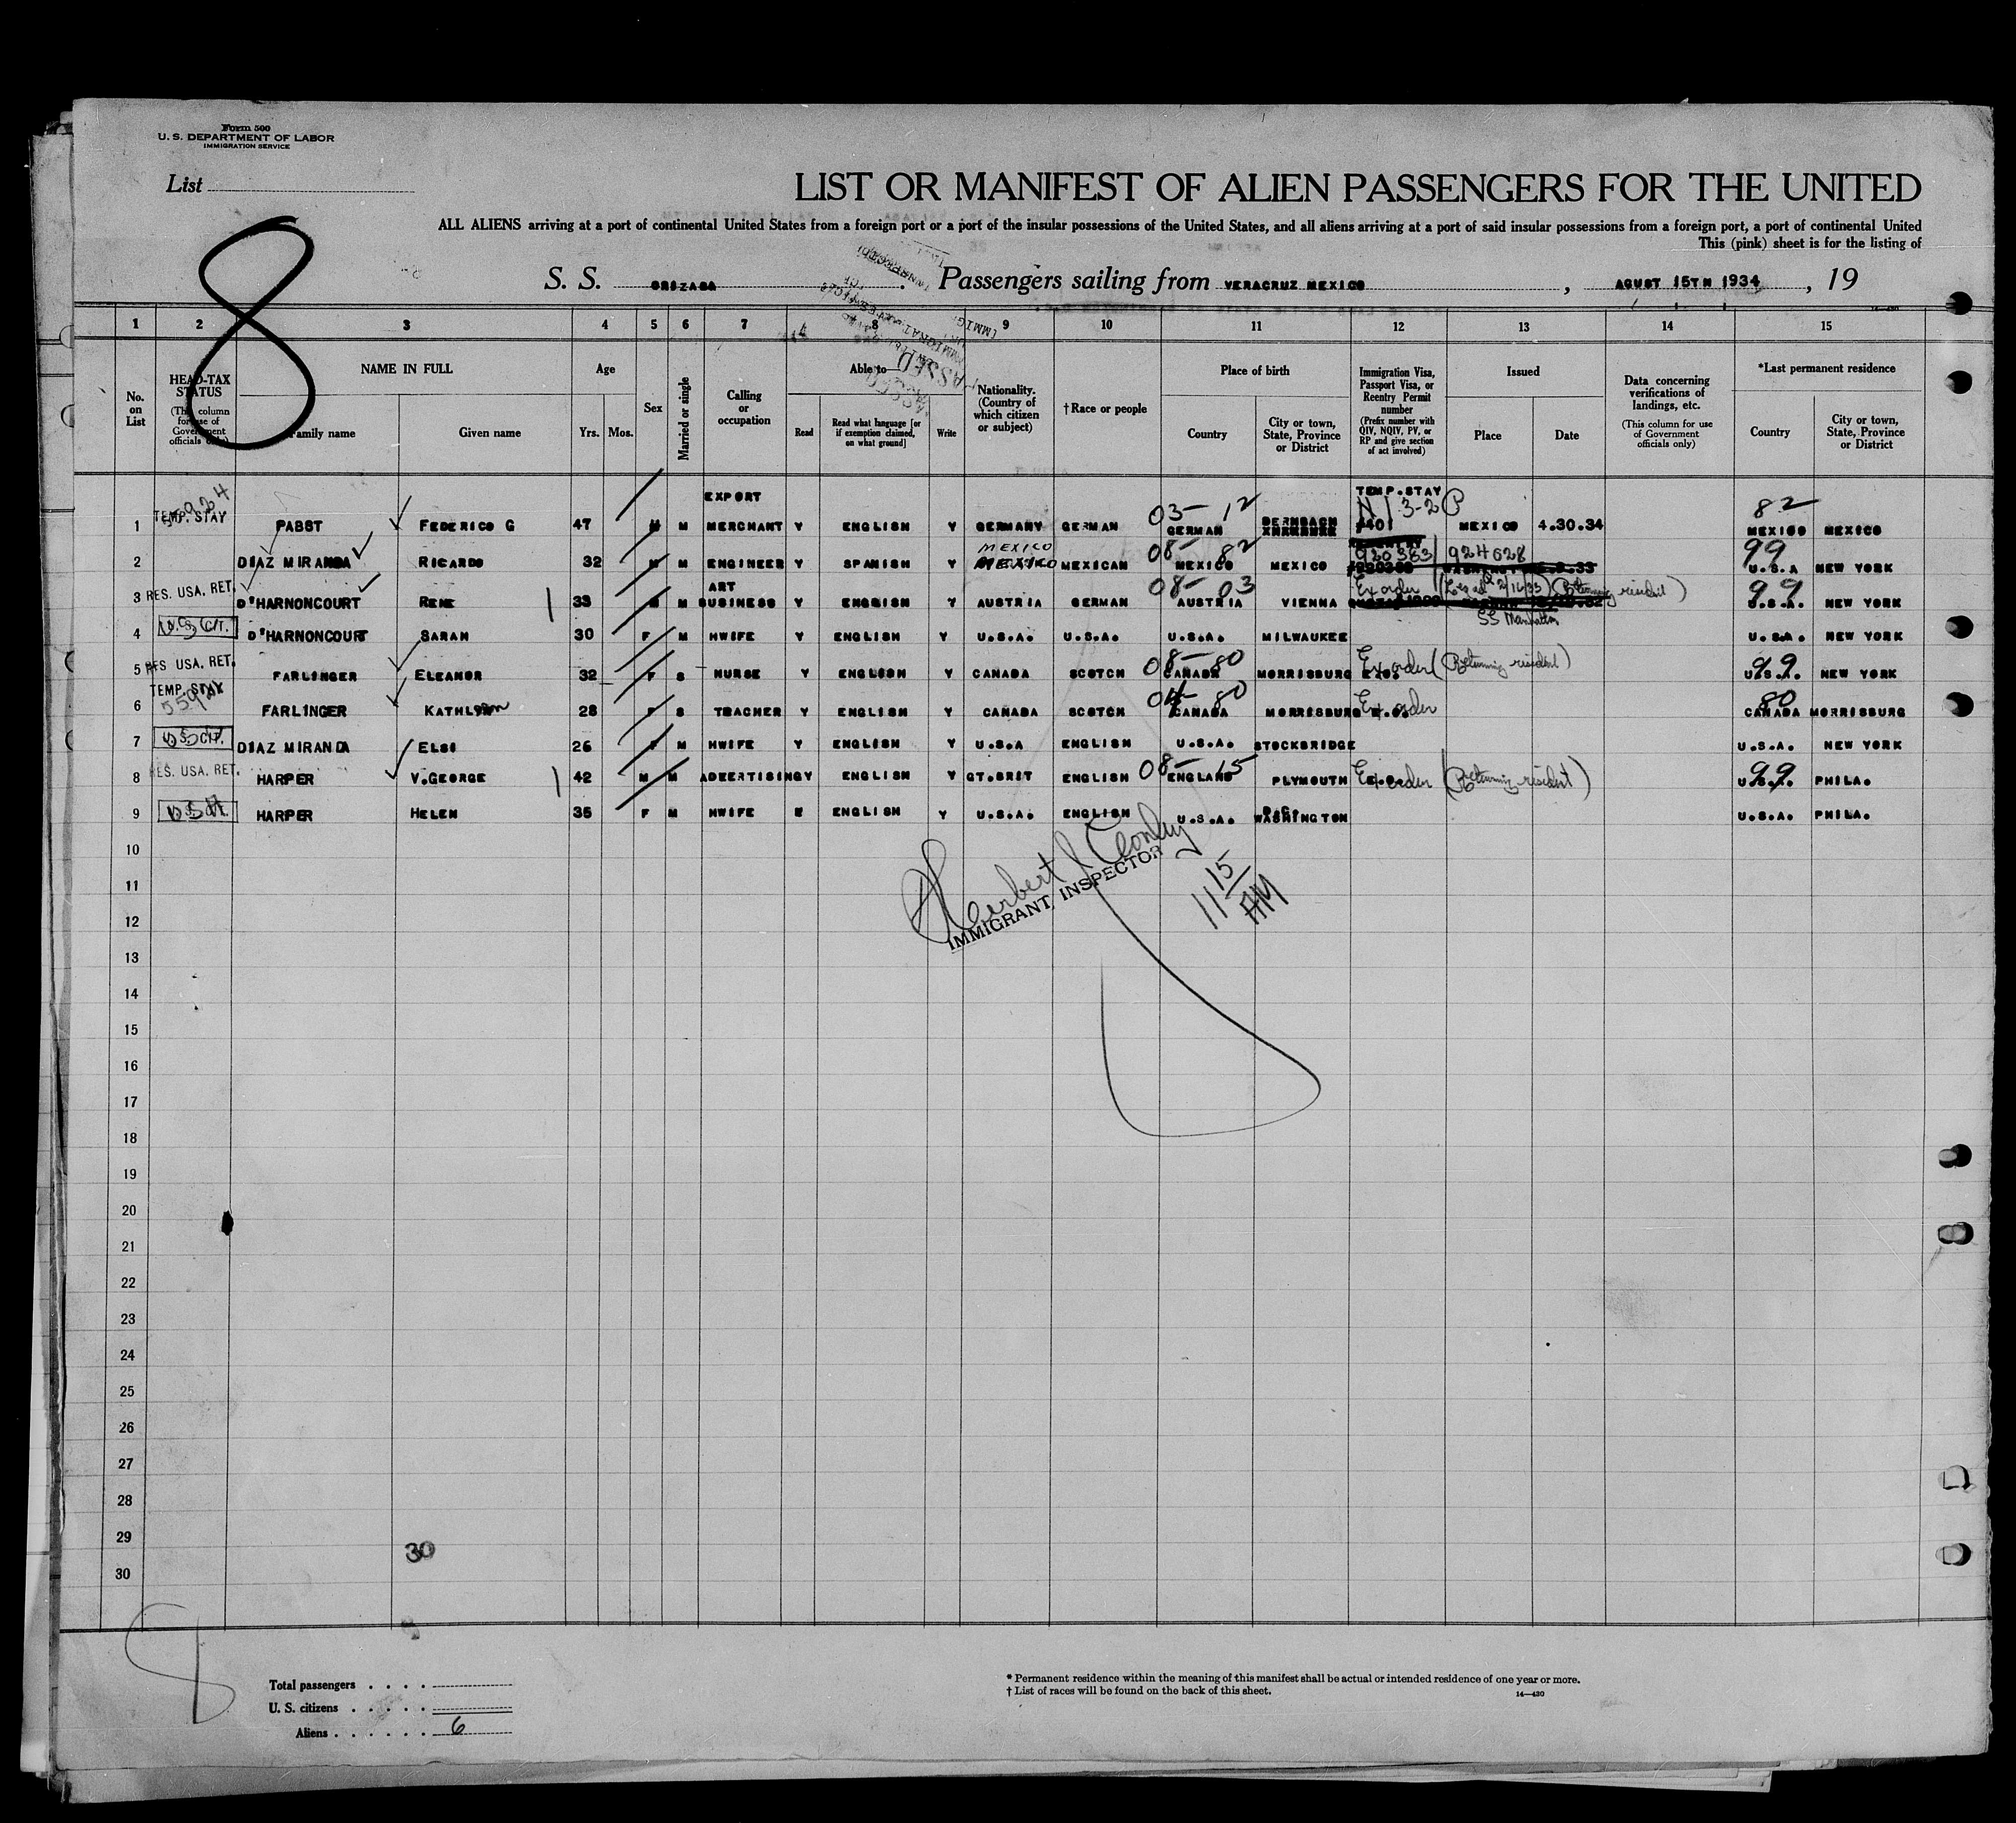 Form 500
U. S. DEPARTMENT OF LABOR
IMMIGRATION SERVICE
List
8
LIST OR MANIFEST OF ALIEN PASSENGERS FOR THE UNITED
ALL ALIENS arriving at a port of continental United States from a foreign port or a port of the insular possessions of the United States, and all aliens arriving at a port of said insular possessions from a foreign port, a port of continental United
This (pink) sheet is for the listing of
S. S. ORIZABA Passengers sailing from VERACRUZ MEXICO , AGUST 15TH 1934 , 19
1 2 3 4 5 6 7 8 9 10 11 12 13 14 15
No. on List
HEAD-TAX STATUS (This column for use of Government officials only)
NAME IN FULL
Family name
Given name
Age
Yrs. Mos.
Sex
Married or single
Calling or occupation
Able to—
Read
Read what language [or if exemption claimed, on what ground]
Write
Nationality. (Country of which citizen or subject)
† Race or people
Place of birth
Country
City or town, State, Province or District
Immigration Visa, Passport Visa, or Reentry Permit number (Prefix number with QIV, NQIV, PV, or RP and give section of act involved)
Issued
Place
Date
Data concerning verifications of landings, etc. (This column for use of Government officials only)
*Last permanent residence
Country
City or town, State, Province or District
PASSED
EXPORT TEMP. STAY
03- 12 N/3-2 P 82
1 TEMP. STAY PABST FEDERICO G 47 M M MERCHANT Y ENGLISH Y GERMANY GERMAN GERMAN BERNBACH MEXICO 4.30.34 MEXICO MEXICO
MEXICO 08- 82 920363 924628 99
2 DIAZ MIRANDA RICARDO 32 M M ENGINEER Y SPANISH Y MEXICO MEXICAN MEXICO MEXICO U.S.A NEW YORK
ART 08- 03 Ex order (Returning resident) 99
3 RES. USA. RET. D'HARNONCOURT RENE 33 M M BUSINESS Y ENGLISH Y AUSTRIA GERMAN AUSTRIA VIENNA U.S.A. NEW YORK
SS Manhattan
4 U.S. CIT. D'HARNONCOURT SARAH 30 F M HWIFE Y ENGLISH Y U.S.A. U.S.A. U.S.A. MILWAUKEE U.S.A. NEW YORK
08- 80 Ex order (Returning resident) 99
5 RES USA. RET. FARLINGER ELEANOR 32 F S NURSE Y ENGLISH Y CANADA SCOTCH CANADA MORRISBURG U.S.A. NEW YORK
04- 80 Ex order 80
6 TEMP. STAY FARLINGER KATHLEEN 28 F S TEACHER Y ENGLISH Y CANADA SCOTCH CANADA MORRISBURG CANADA MORRISBURG
7 U.S. CIT. DIAZ MIRANDA ELSI 26 F M HWIFE Y ENGLISH Y U.S.A ENGLISH U.S.A. STOCKBRIDGE U.S.A. NEW YORK
08- 15 Ex order (Returning resident) 99
8 RES. USA. RET. HARPER V.GEORGE 42 M M ADEERTISING Y ENGLISH Y GT.BRIT ENGLISH ENGLAND PLYMOUTH U.S.A. PHILA.
D.C.
9 U.S. CIT. HARPER HELEN 35 F M HWIFE ENGLISH Y U.S.A. ENGLISH U.S.A. WASHINGTON U.S.A. PHILA.
10
Herbert J Conley
IMMIGRANT INSPECTOR
11 15 AM
11
12
13
14
15
16
17
18
19
20
21
22
23
24
25
26
27
28
29
30
30
Total passengers
U. S. citizens
Aliens 6
* Permanent residence within the meaning of this manifest shall be actual or intended residence of one year or more.
† List of races will be found on the back of this sheet.
14—430